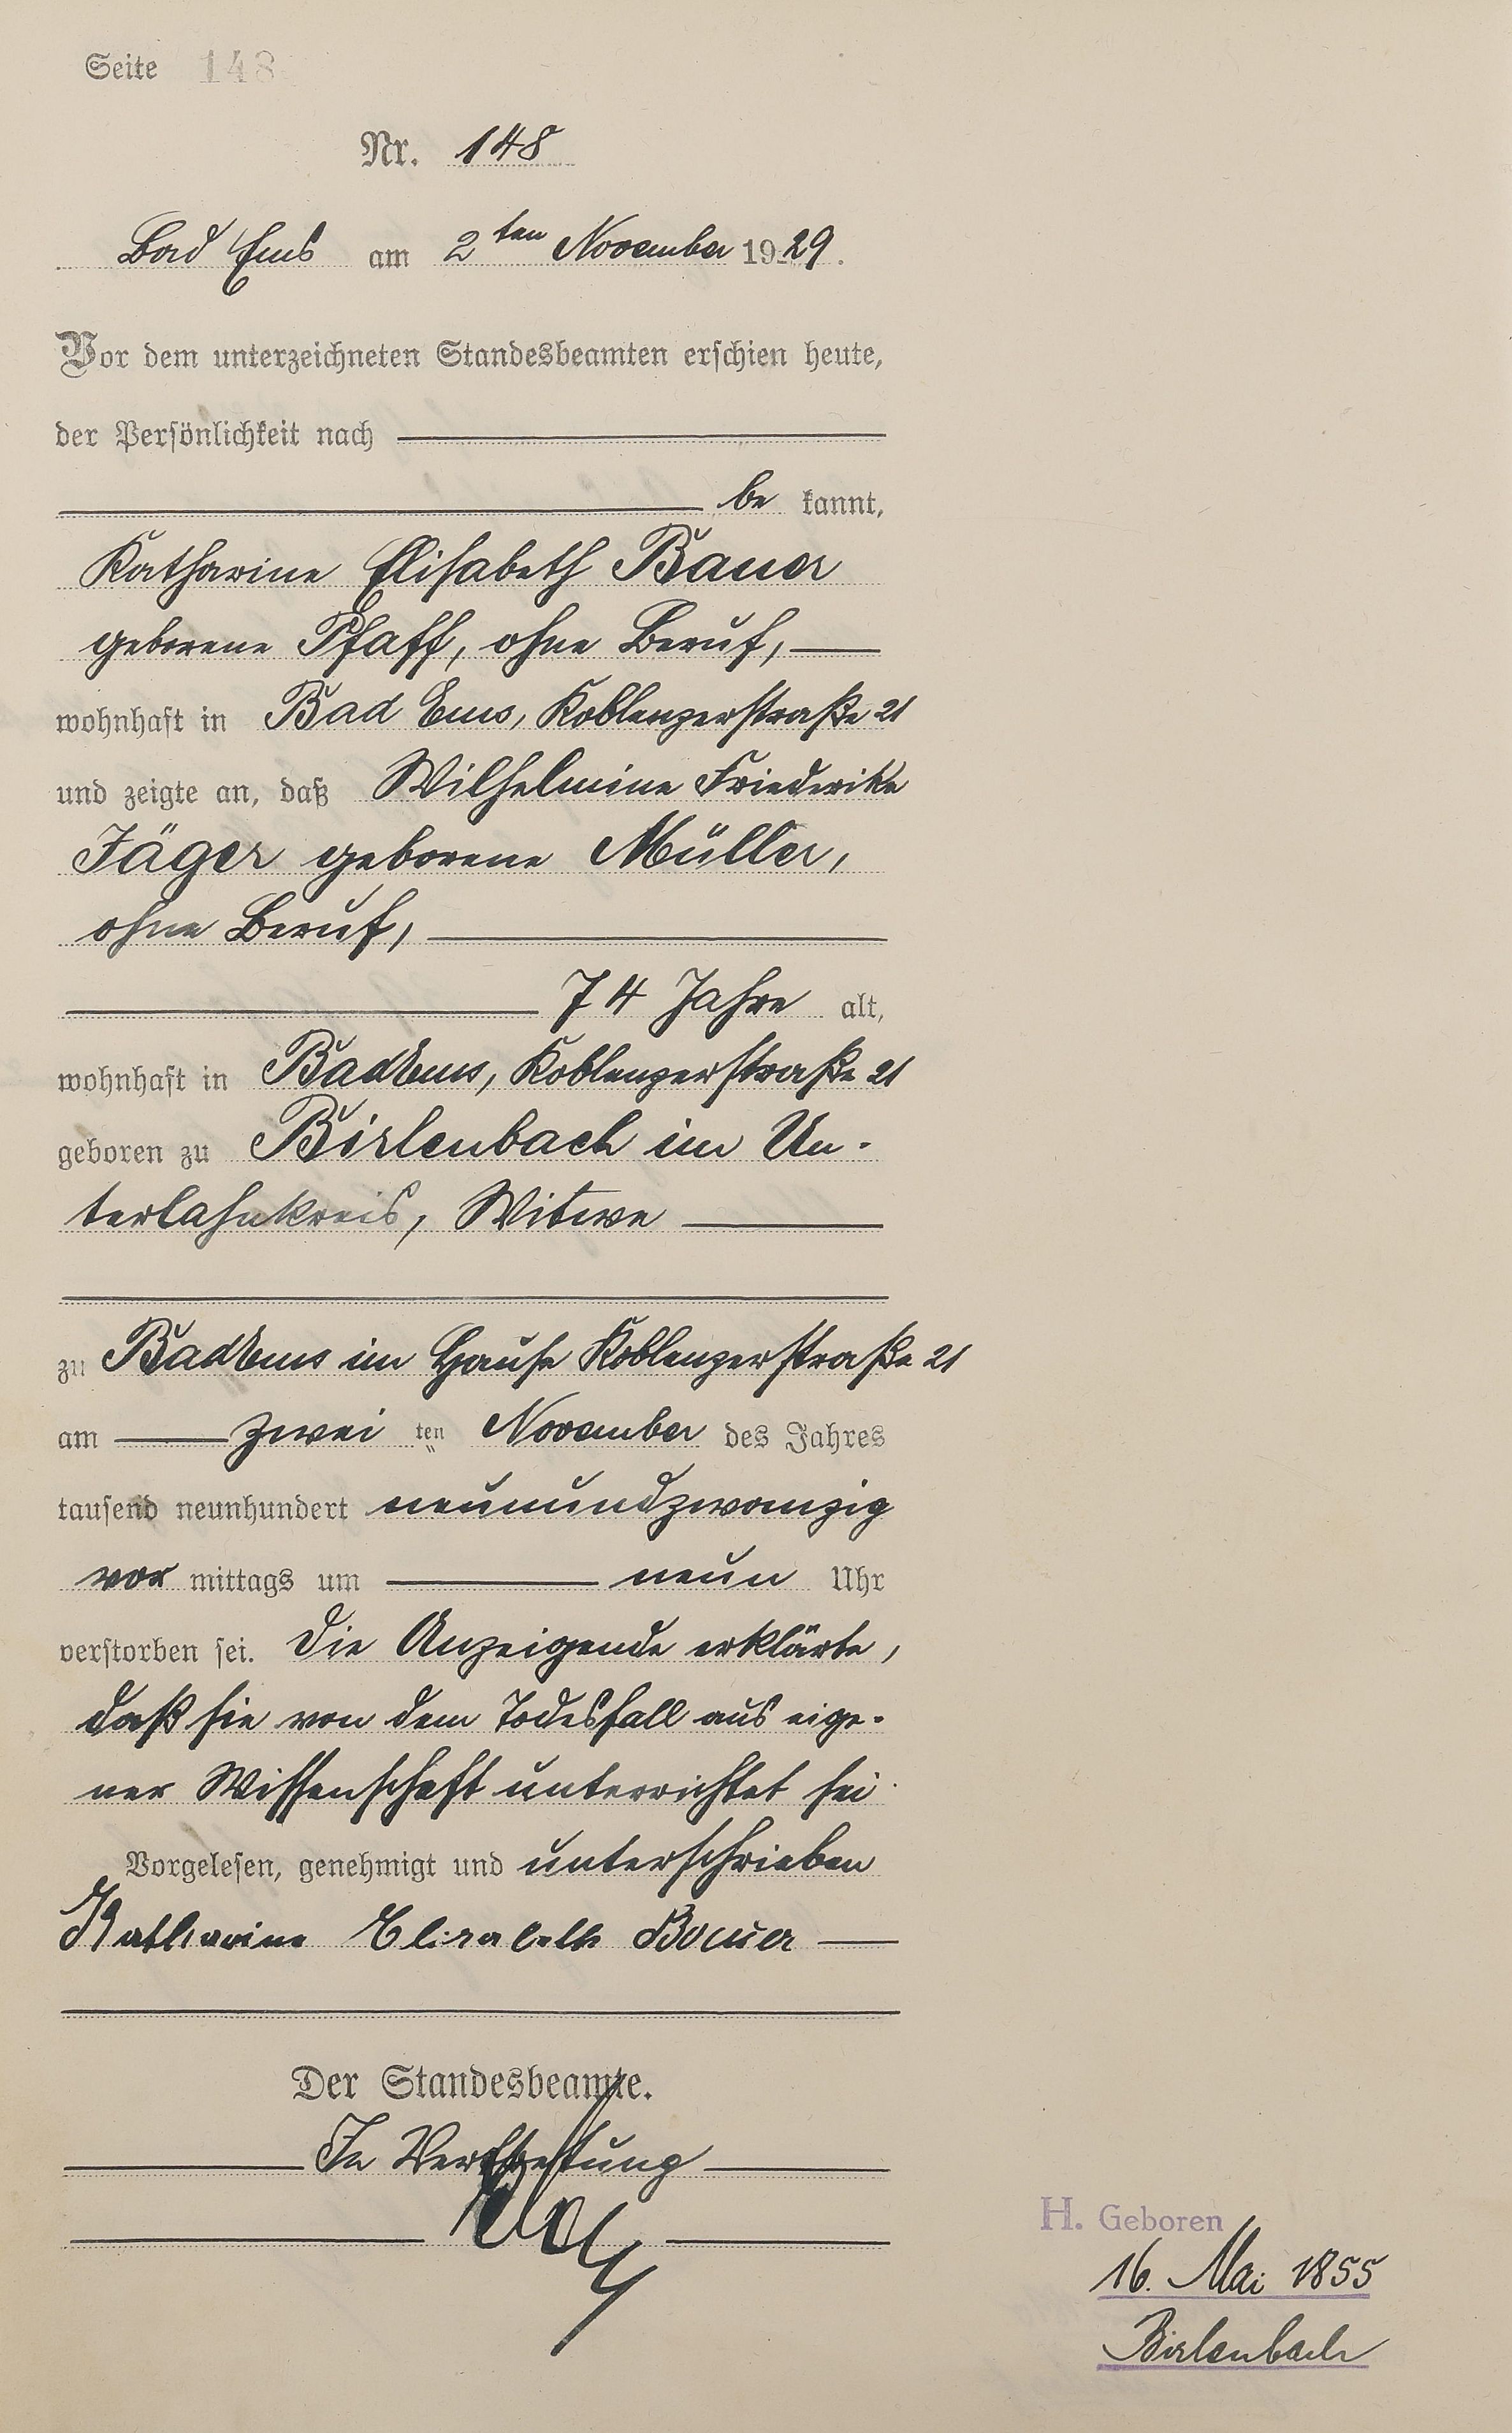 Seite 148
Nr. 148
Bad Ems am 2ten November 1929.
Vor dem unterzeichneten Standesbeamten erschien heute,
der Persönlichkeit nach
be kannt,
Katharine Elisabeth Bauer
geborene Pfaff, ohne Beruf,
wohnhaft in Bad Ems, Koblenzerstraße 21
und zeigte an, daß Wilhelmine Friederike
Jäger geborene Müller,
ohne Beruf,
74 Jahre alt,
wohnhaft in Bad Ems, Koblenzerstraße 21
geboren zu Birlenbach im Un-
terlahnkreis, Witwe
zu Bad Ems im Hause Koblenzerstraße 21
am zwei ten November des Jahres
tausend neunhundert neunundzwanzig
vor mittags um neun Uhr
verstorben sei. Die Anzeigende erklärte,
daß sie von dem Todesfall aus eige-
ner Wissenschaft unterrichtet sei.
Vorgelesen, genehmigt und unterschrieben
Katharine Elisabeth Bauer
Der Standesbeamte.
In Vertretung
H. Geboren
16. Mai 1855
Birlenbach